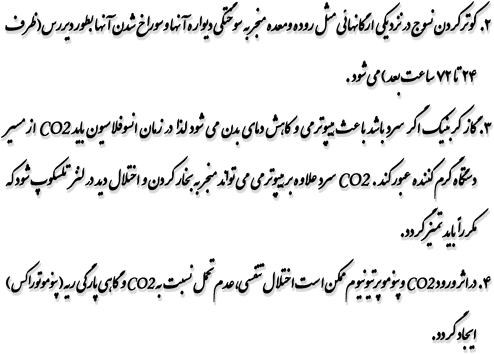 ۲. کوتر کردن نسوج در نزدیکی ارگانهائی مثل روده و معده منجر به سوختگی دیواره آنها و سوراخ شدن آنها بطور دیررس (ظرف
۲۴ تا ۷۲ ساعت بعد) می شود.
۳. گاز کربنیک اگر سرد باشد باعث هیپوترمی و کاهش دمای بدن می شود لذا در زمان انسوفلاسیون باید CO2 از مسیر
دستگاه گرم کننده عبور کند. CO2 سرد علاوه بر هیپوترمی می تواند منجر به بخار کردن و اختلال دید در لنز تلسکوپ شود که
مکرراً باید تمیز گردد.
۴. در اثر ورود CO2 و پنوموپریتونیوم ممکن است اختلال تنفسی، عدم تحمل نسبت به CO2 و گاهی پارگی ریه (پنوموتوراکس)
ایجاد گردد.